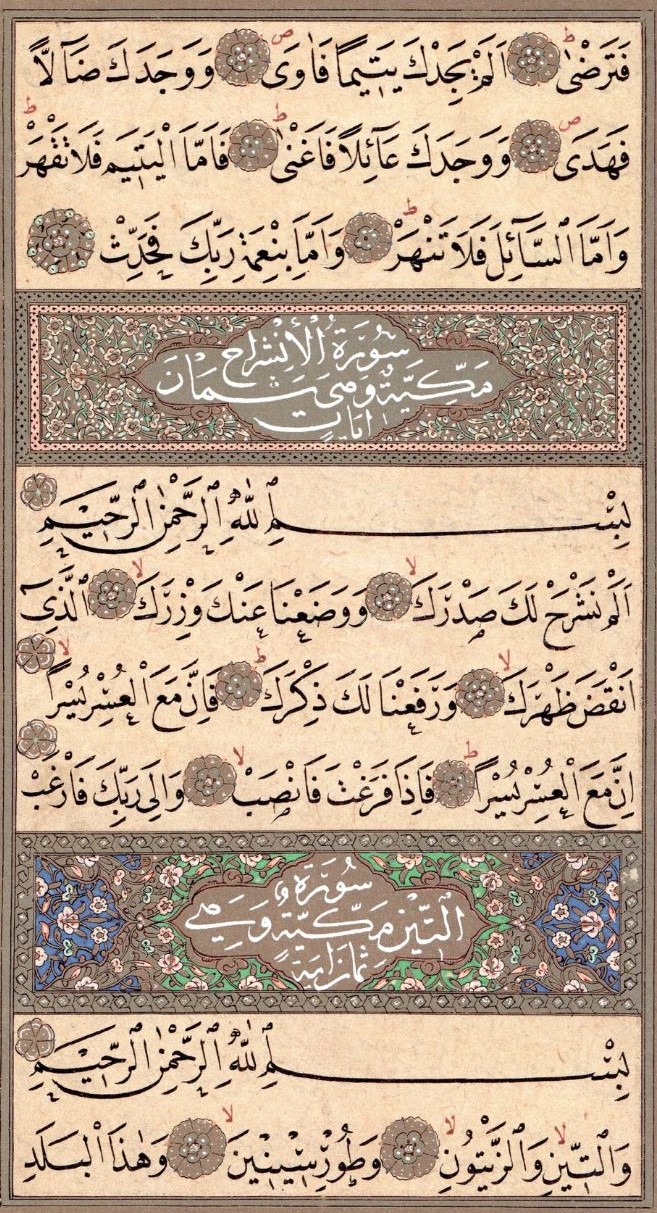 فَتَرْضٰىۜ اَلَمْ يَجِدْكَ يَتٖيماً فَاٰوٰىࣕ وَوَجَدَكَ ضَٓالاًّ
فَهَدٰىࣕ وَوَجَدَكَ عَٓائِلاً فَاَغْنٰىؕ فَاَمَّا الْيَتٖيمَ فَلَا تَقْهَرْؕ
وَاَمَّا السَّٓائِلَ فَلَا تَنْهَرْؕ وَاَمَّا بِنِعْمَةِ رَبِّكَ فَحَدِّثْ
سُورَةُ الْاِنْشِرَاحِ
مَكِّيَّةٌ وَهِيَ ثَمَانُ
اٰيَاتٍ
بِسْمِ اللّٰهِ الرَّحْمٰنِ الرَّحٖيمِ
اَلَمْ نَشْرَحْ لَكَ صَدْرَكَۙ وَوَضَعْنَا عَنْكَ وِزْرَكَۙ اَلَّذٖٓى
اَنْقَضَ ظَهْرَكَۙ وَرَفَعْنَا لَكَ ذِكْرَكَؕ فَاِنَّ مَعَ الْعُسْرِ يُسْراًۙ
اِنَّ مَعَ الْعُسْرِ يُسْراًؕ فَاِذَا فَرَغْتَ فَانْصَبْۙ وَاِلٰى رَبِّكَ فَارْغَبْ
سُورَةُ
التّٖينِ مَكِّيَّةٌ وَهِيَ
ثَمَانُ اٰيَةٍ
بِسْمِ اللّٰهِ الرَّحْمٰنِ الرَّحٖيمِ
وَالتّٖينِۙ وَالزَّيْتُونِۙ وَطُورِ سٖينٖينَۙ وَهٰذَا الْبَلَدِ